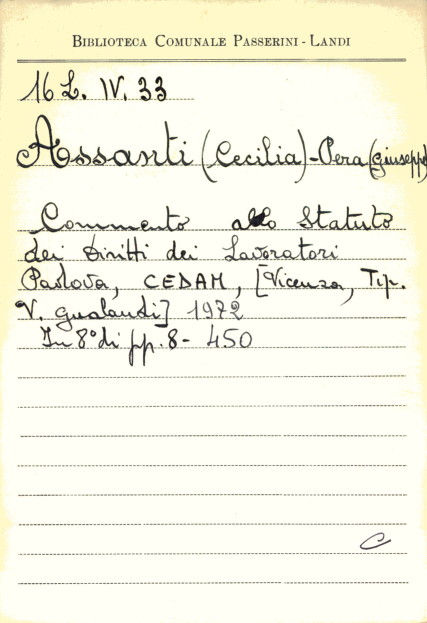 BIBLIOTECA COMUNALE PASSERINI - LANDI
16 L. IV. 33
Assanti (Cecilia) - Pera (Giuseppe)
Commento allo Statuto
dei Diritti dei Lavoratori
Padova, CEDAM, [Vicenza, Tip.
V. Gualandi] 1972
In 8° di pp. 8 - 450
C